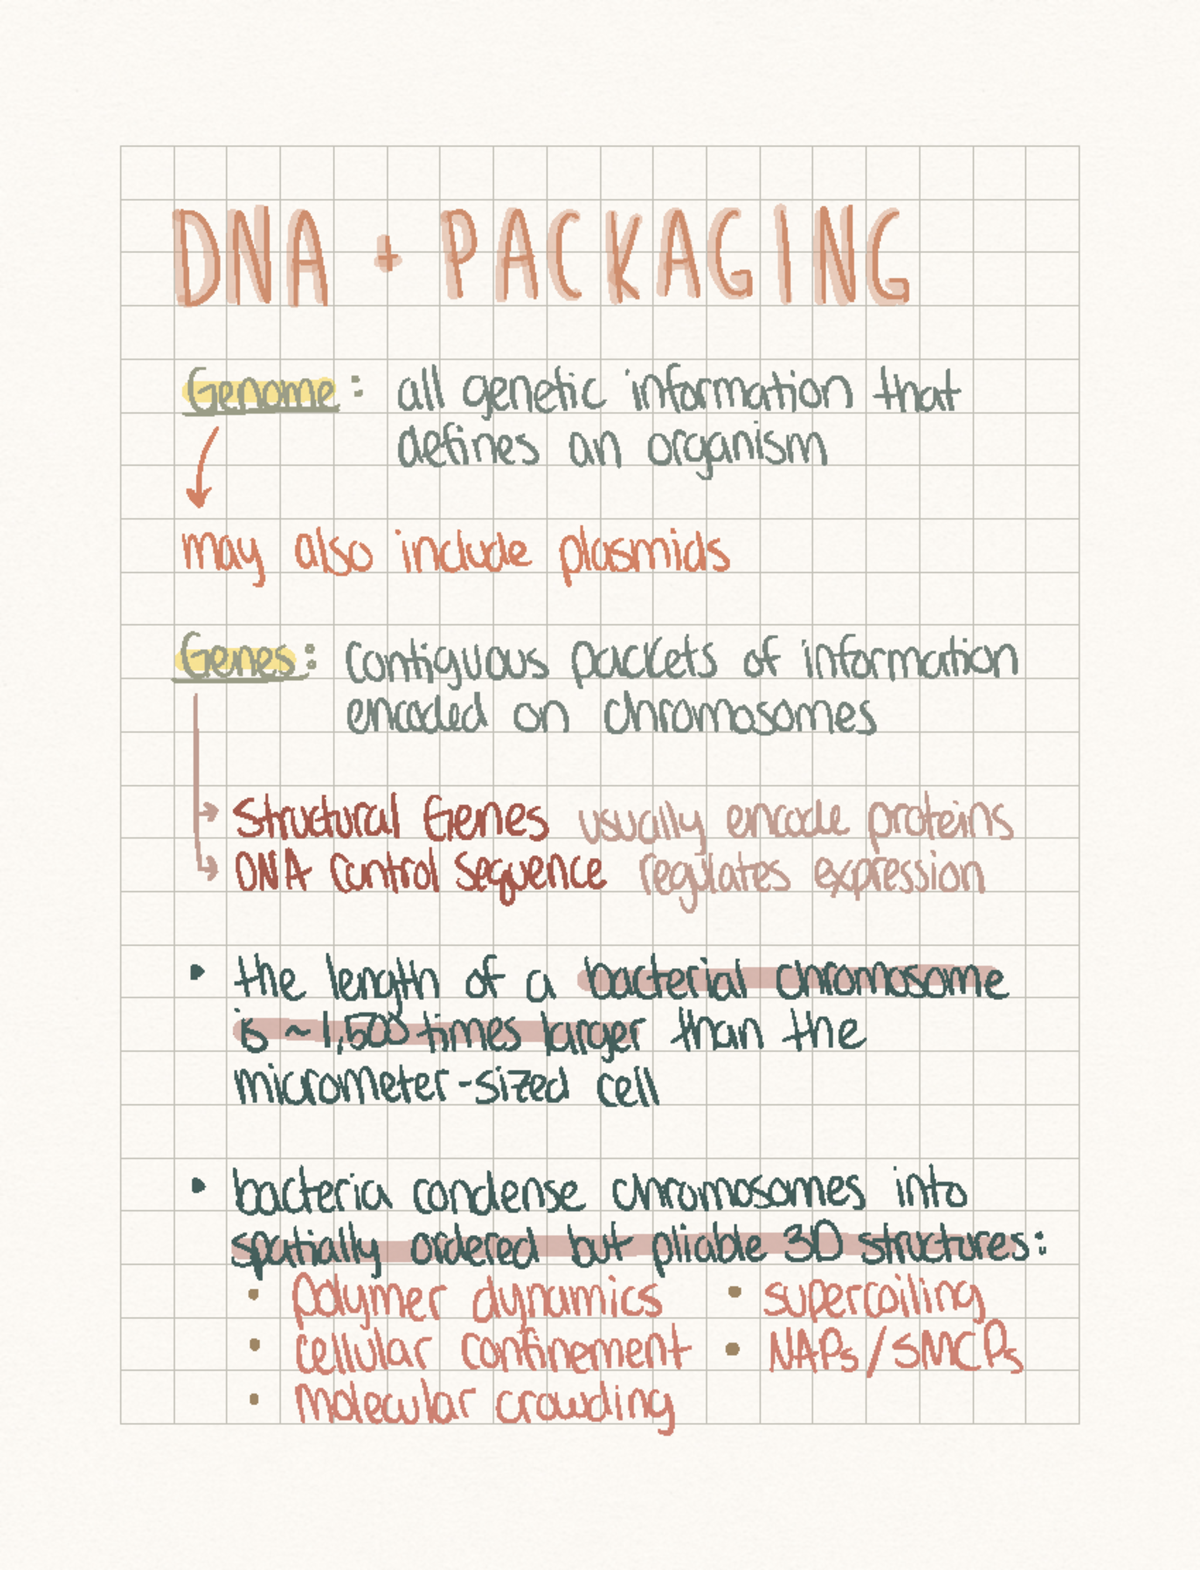 DNA + PACKAGING
Genome: all genetic information that
defines an organism
may also include plasmids
Genes: contiguous packets of information
encoded on chromosomes
Structural Genes usually encode proteins
DNA Control Sequence regulates expression
• the length of a bacterial chromosome
is ~1,500 times larger than the
micrometer-sized cell
• bacteria condense chromosomes into
spatially ordered but pliable 3D structures:
• polymer dynamics • supercoiling
• cellular confinement • NAPs/SMCPs
• molecular crowding